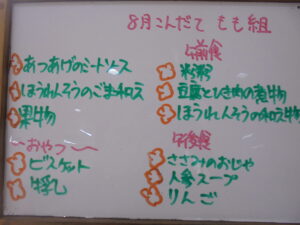 8月こんだて もも組
あつあげのミートソース
ほうれんそうのごま和え
果物
～おやつ～
ビスケット
牛乳
午前食
米粥
豆腐とひき肉の煮物
ほうれんそうの和え物
午後食
ささみのおじや
人参スープ
りんご